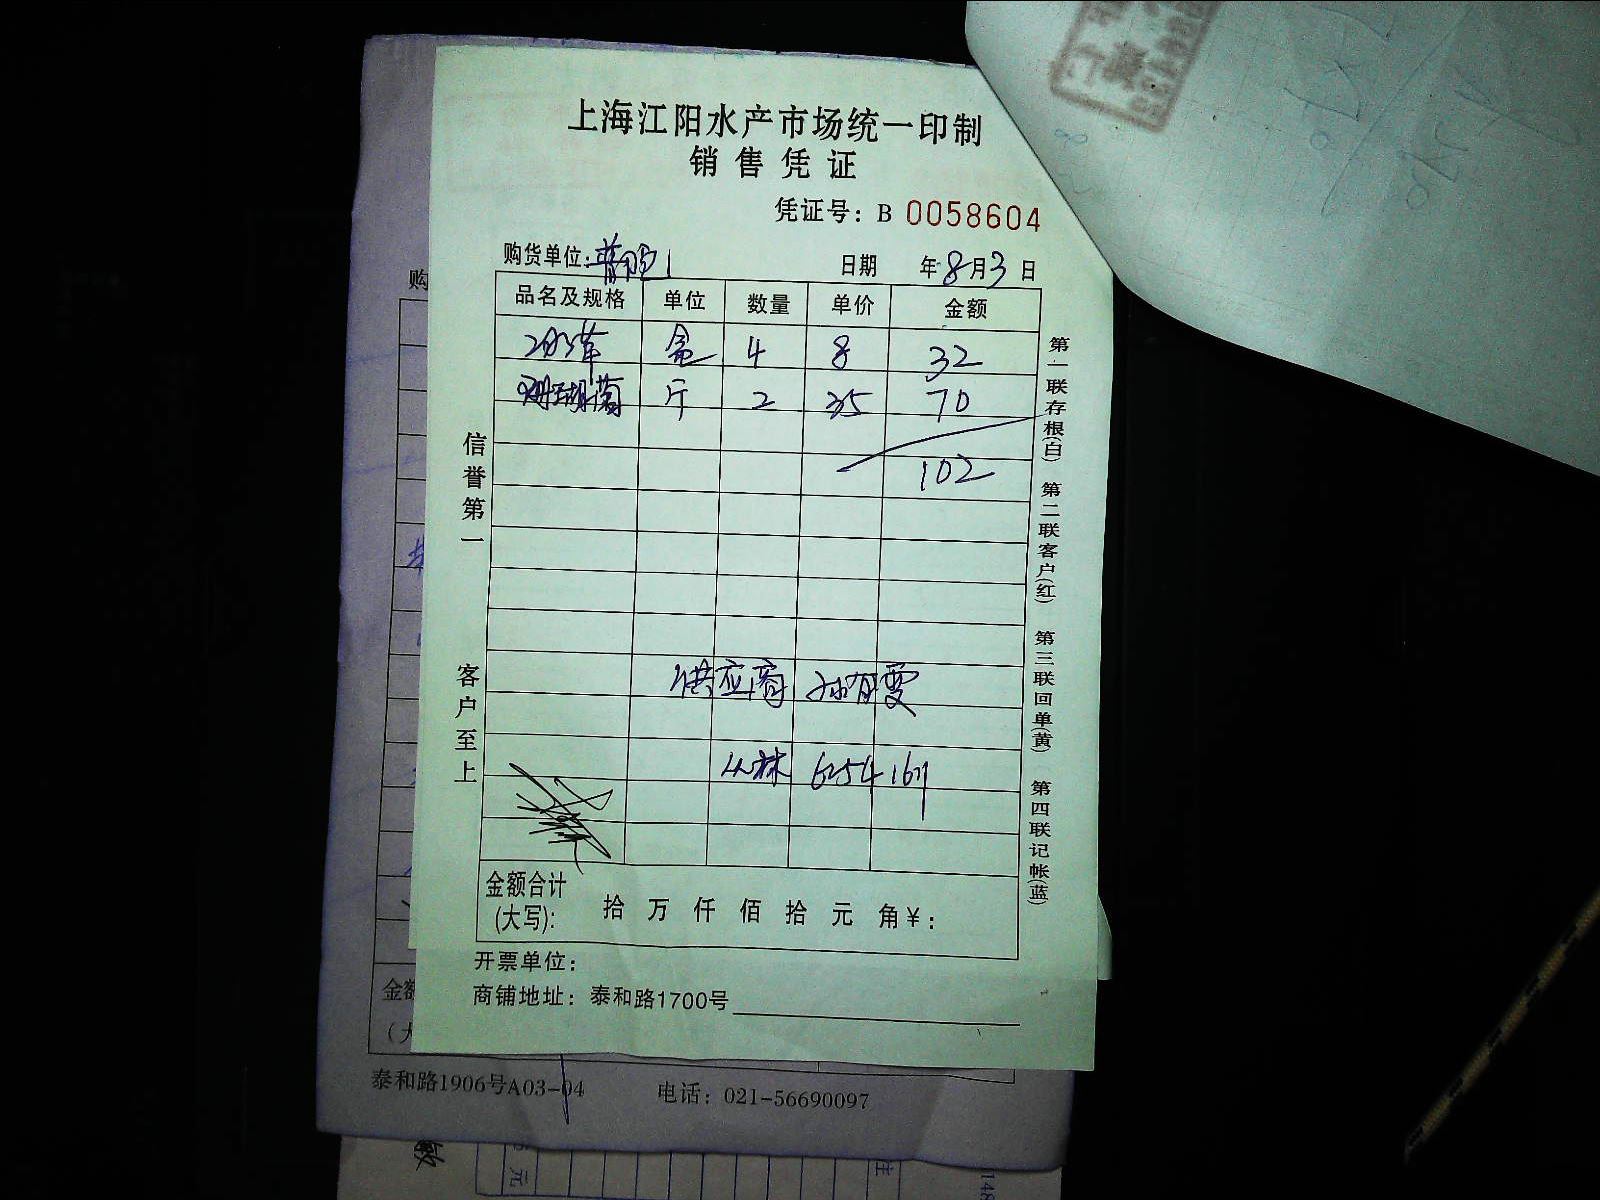 上海江阳水产市场统一印制
销售凭证
凭证号：B 0058604
购货单位： 日期 年8月3日
品名及规格 单位 数量 单价 金额
盒 4 8 32
珊瑚菌 斤 2 35 70
102
供应商
丛林 6254
金额合计
(大写): 拾 万 仟 佰 拾 元 角 ¥:
开票单位：
商铺地址：泰和路1700号
信誉第一 客户至上
第一联存根(白) 第二联客户(红) 第三联回单(黄) 第四联记帐(蓝)
购
金额
泰和路1906号A03-04 电话：021-56690097
元